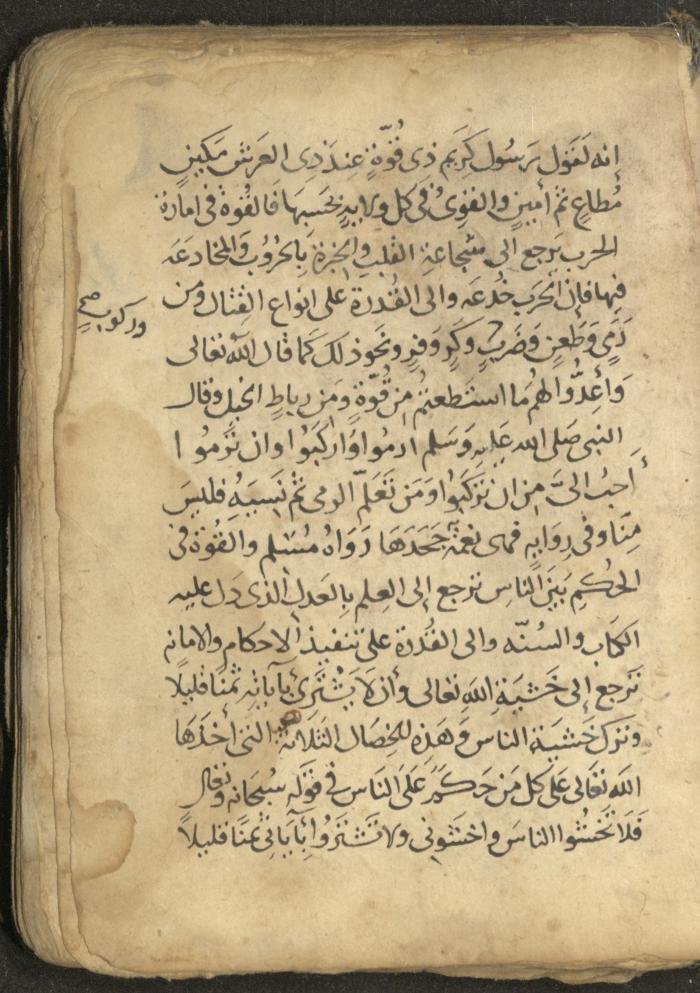 إنه لقول رسول كريم ذى قُوّةٍ عند ذى العرش مكين
مُطاعٍ ثَمّ أمين والقوىُ فى كل ولايةٍ بحَسَبها فالقُوة فى امارة
الحرب يَرجع الى شجاعةِ القلب والخبرة بالحروُب والمخادعَه
فيها فإن الحَرب خُدعَه والى القُدرة على انواع القِتال من
رَمىٍ وَطَعنٍ وَضَربٍ وكَرٍ وَفرٍ ونحو ذلك كَما قال اللّه تعالى
وركوب صح
وَأعِدُّوا لهُم مَا استَطعتم مِن قُوّةٍ ومَن رباطِ الخيل وقال
النبى صَلى الله عَليه وَسَلم ارمُوا وَاركَبُوا وان تَرمُوا
أحبُ الىَّ مِن ان تركَبُوا وَمَن تَعَلّم الرمى ثم نَسِيَهِ فليسَ
مِنّا وفى رِوَايهٍ فهى نعمَةٌ جَحَدَهَا رَوَاهُ مُسْلم والقُوة فى
الحُكمِ بَينَ الناسِ ترجع إلى العِلم بِالعَدل الذى دَل عليه
الكتاب والسُنّه والى القُدرة على تنفيذ الاحكام والامانه
تَرجع إلى خَشيَةِ اللّه تعالى وأن لاَ يَشْتَرى بآياته ثمنًا قليلاً
وترك خَشيَة الناس وَهَذِه الخصَال الثَلاثة التى أخذَهَا
اللّه تعَالى على كل مَن حَكمَ عَلى الناسِ فى قوَله سُبحانه وتعال
فَلاَ تَخْشَوُا الناسَ واخشَونى ولا تَشتَرُوا بآيَاتى ثمَنًا قليلاً